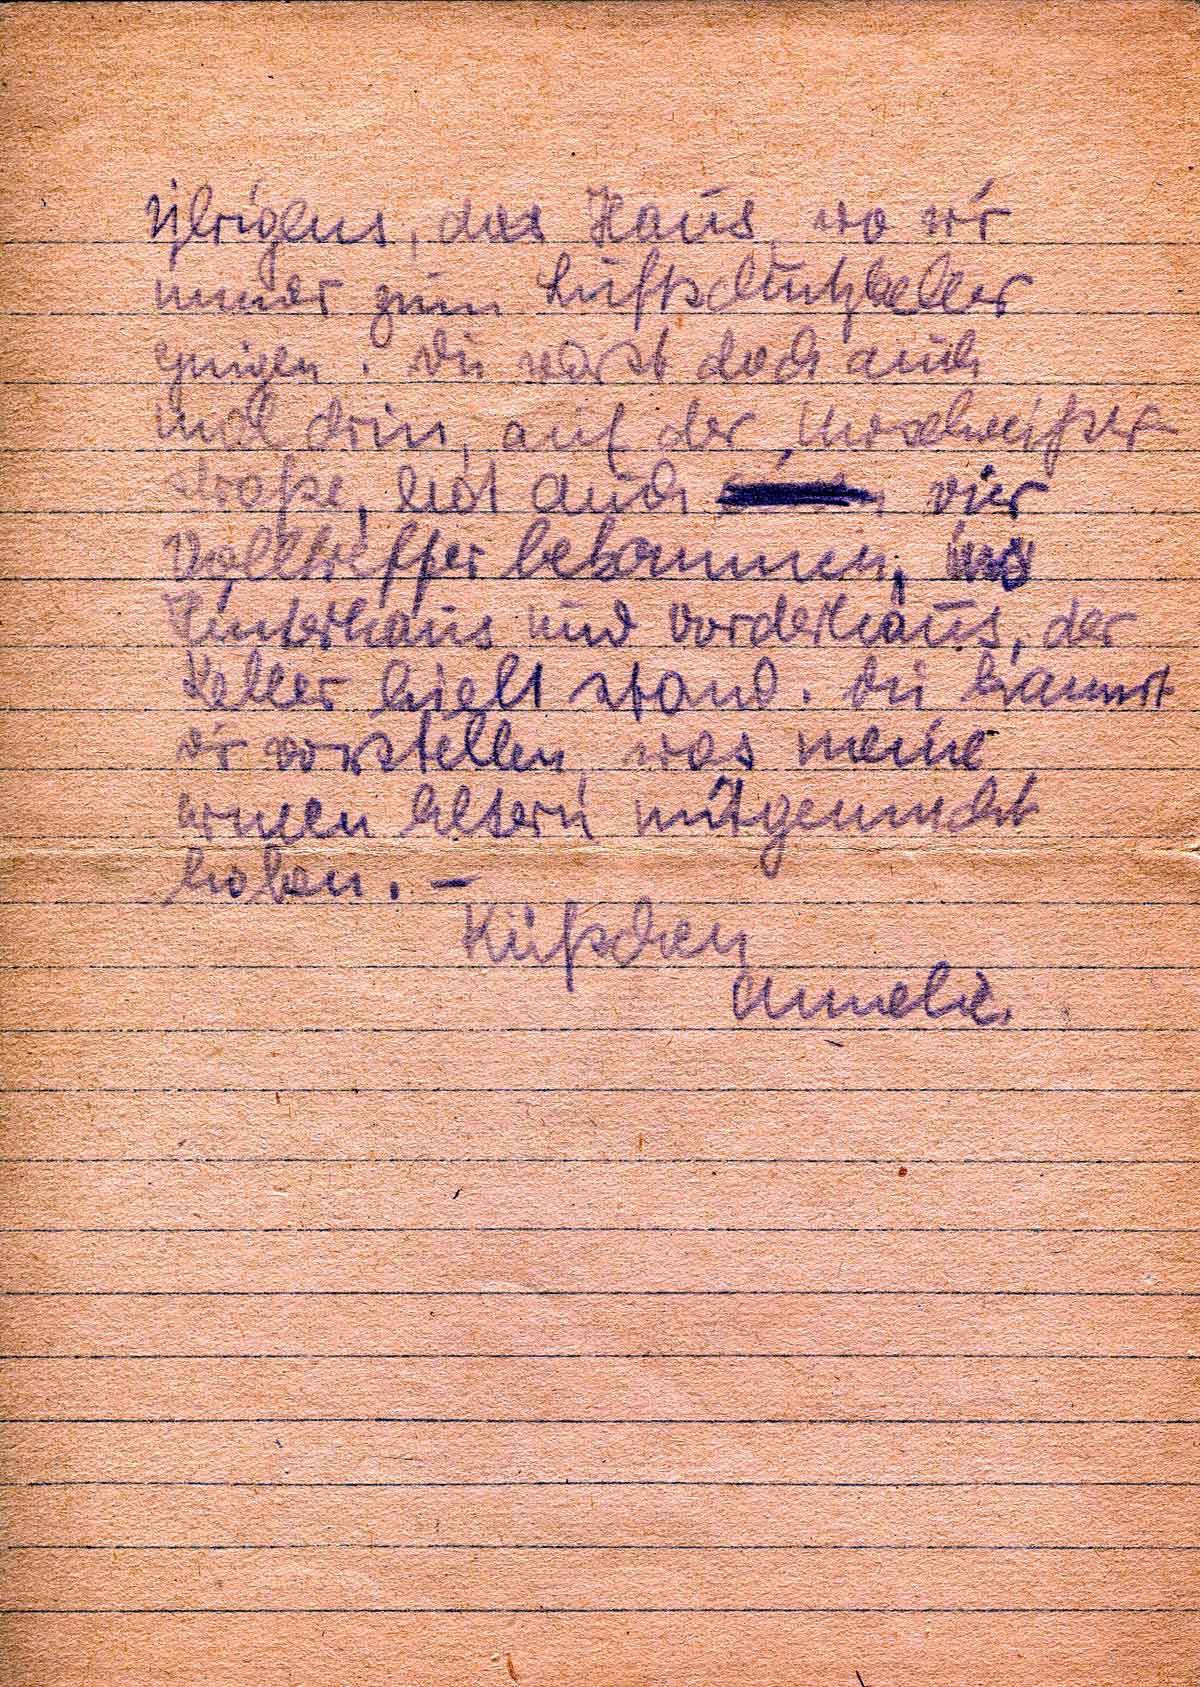 Übrigens, das Haus, wo wir
immer zum Luftschutzkeller
gingen. Du warst doch auch
mal drin, auf der
straße, hat auch vier
Volltreffer bekommen, ins
Hinterhaus und Vorderhaus, der
Keller hielt stand. Du kannst
dir vorstellen, was meine
armen Eltern mitgemacht
haben. –
Küßchen
Annelie.